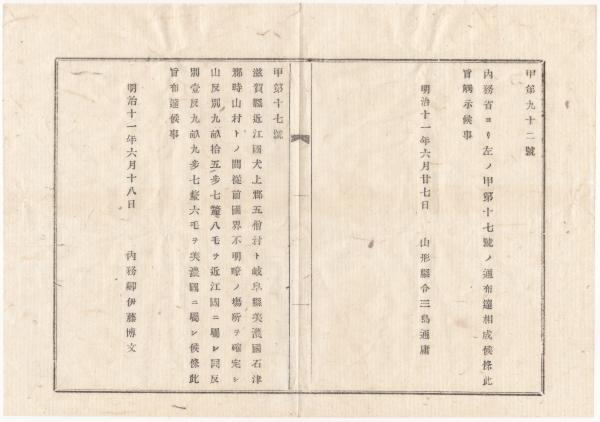 甲第九十二號
內務省ヨリ左ノ甲第十七號ノ通布達相成候條此
旨觸示候事
明治十一年六月廿七日　山形縣令三島通庸
甲第十七號
滋賀縣近江國犬上郡五僧村ト岐阜縣美濃國石津
郡時山村トノ間從前國界不明暸ノ場所ヲ確定シ
山反別九畝拾五步七釐八毛ヲ近江國ニ屬シ同反
別壹反九畝九步七釐六毛ヲ美濃國ニ屬シ候條此
旨布達候事
明治十一年六月十八日　內務卿伊藤博文